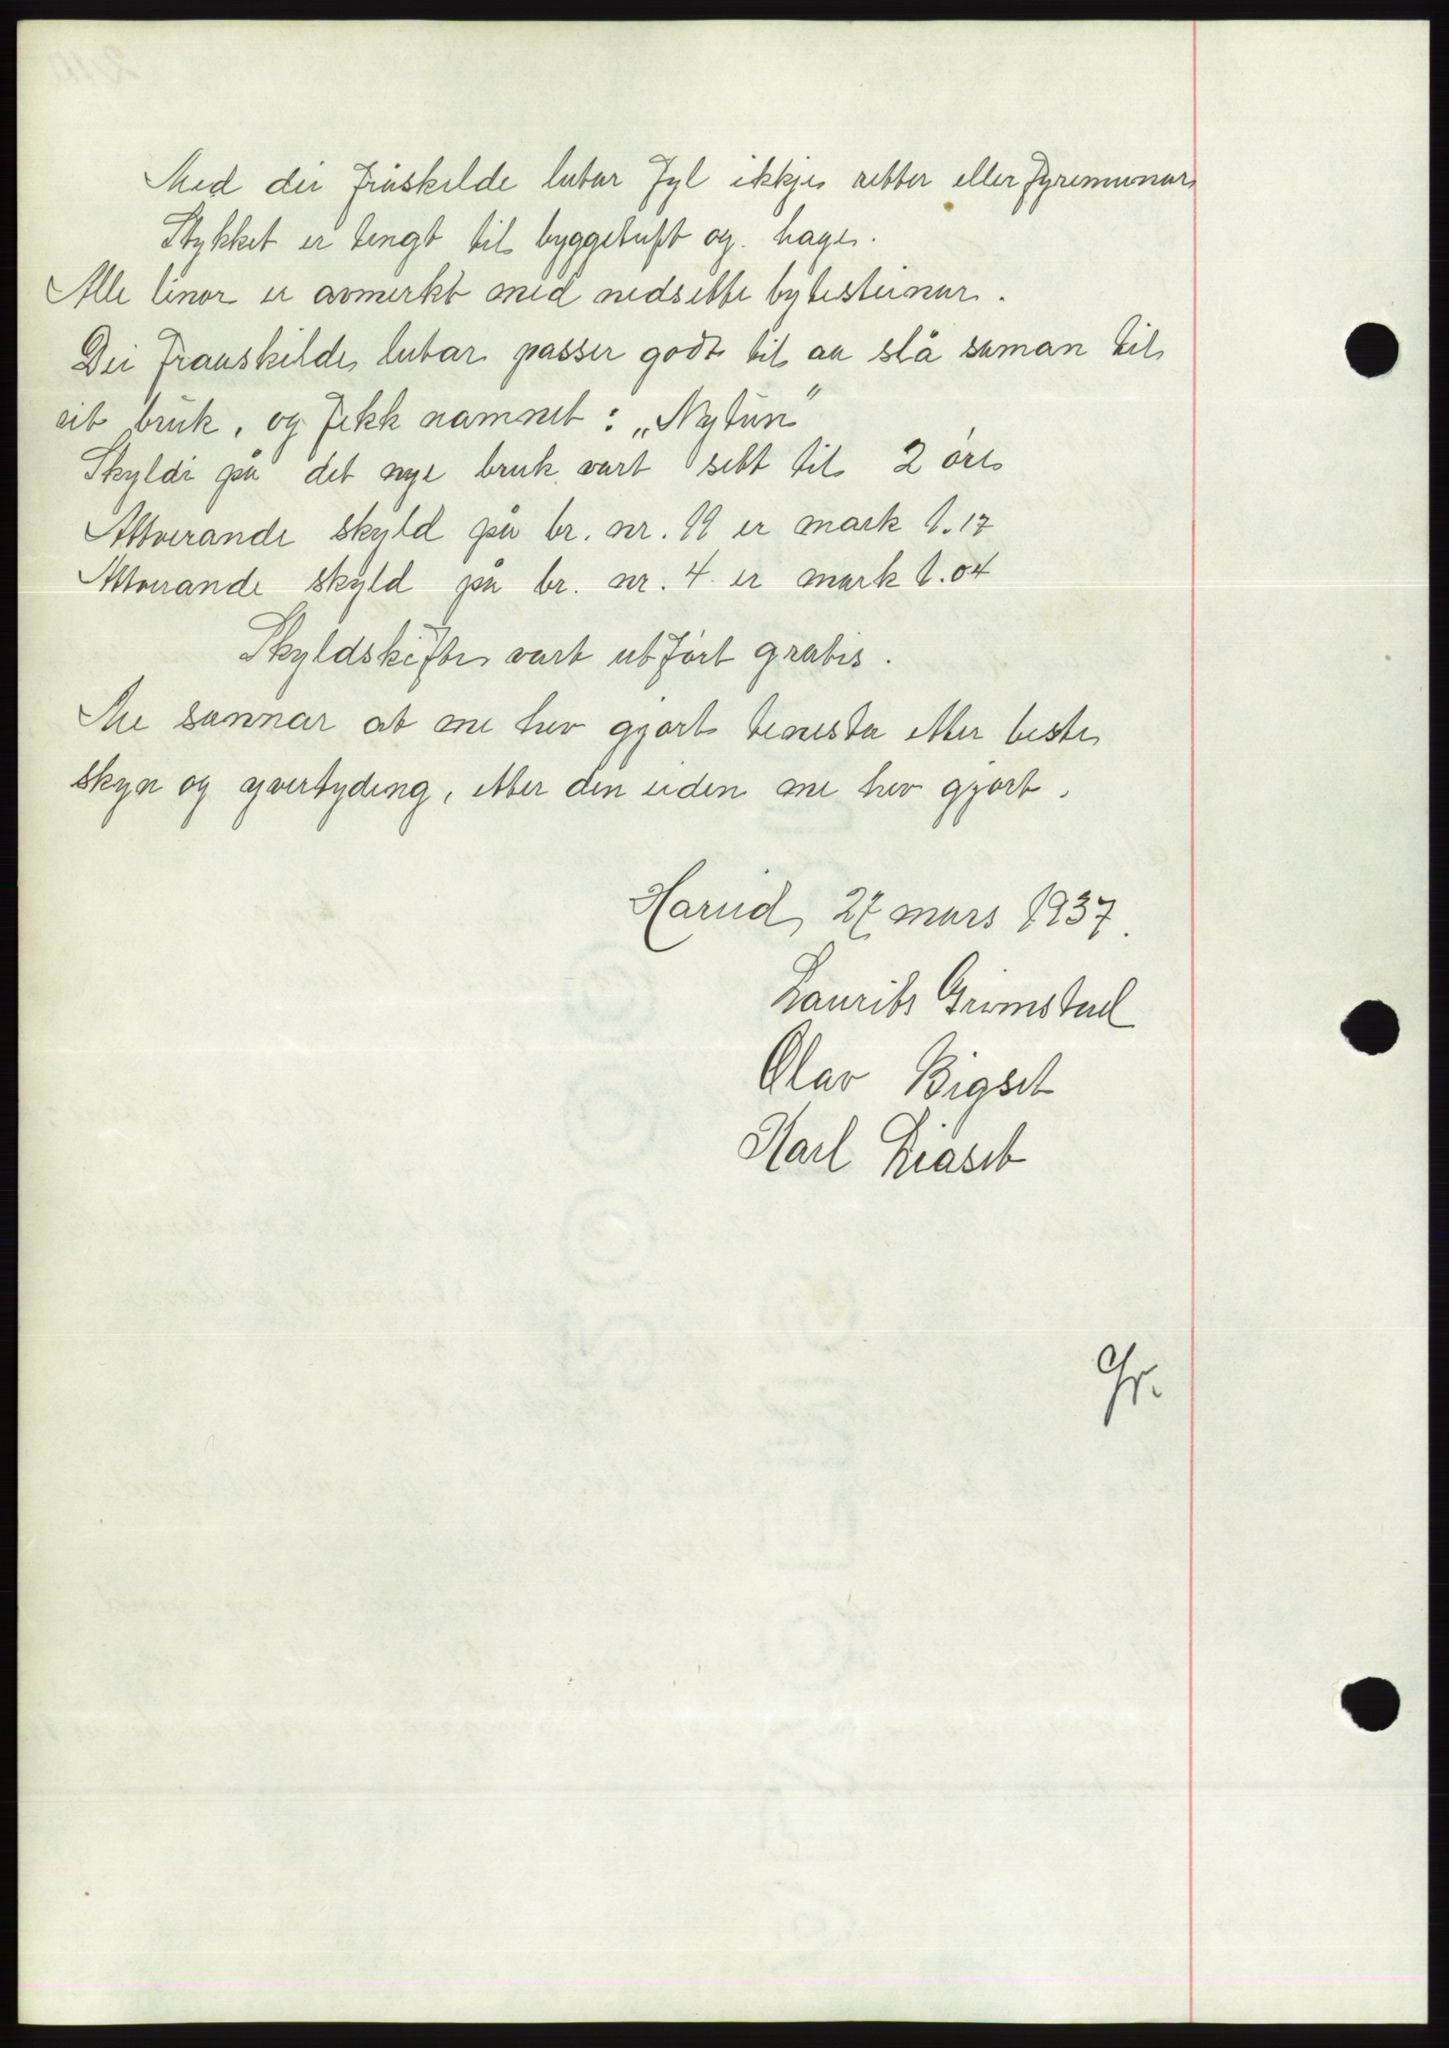 Med dei fråskilde lutar fyl ikkje retter eller fyremunar
Stykket er tengt til byggetuft og hage.
Alle linor er avmerkt med nedsette bytesteinar.
Dei fraaskilde lutar passer godt til aa slå saman til
eit bruk, og fekk namnet: „Nytun"
Skyldi på det nye bruk vart sett til 2 öre
Attverande skyld på br. nr. 11 er mark 1.17
Attverande skyld på br. nr. 4 er mark 1.04
Skyldskifte vart utfört gratis.
Me sannar at me hev gjort tenesta etter beste
skyn og yvertyding, etter den eiden me hev gjort.
Hareid, 27 mars 1937.
Laurits Grimstad
Olav Bigset
Karl Liaset
Gr.